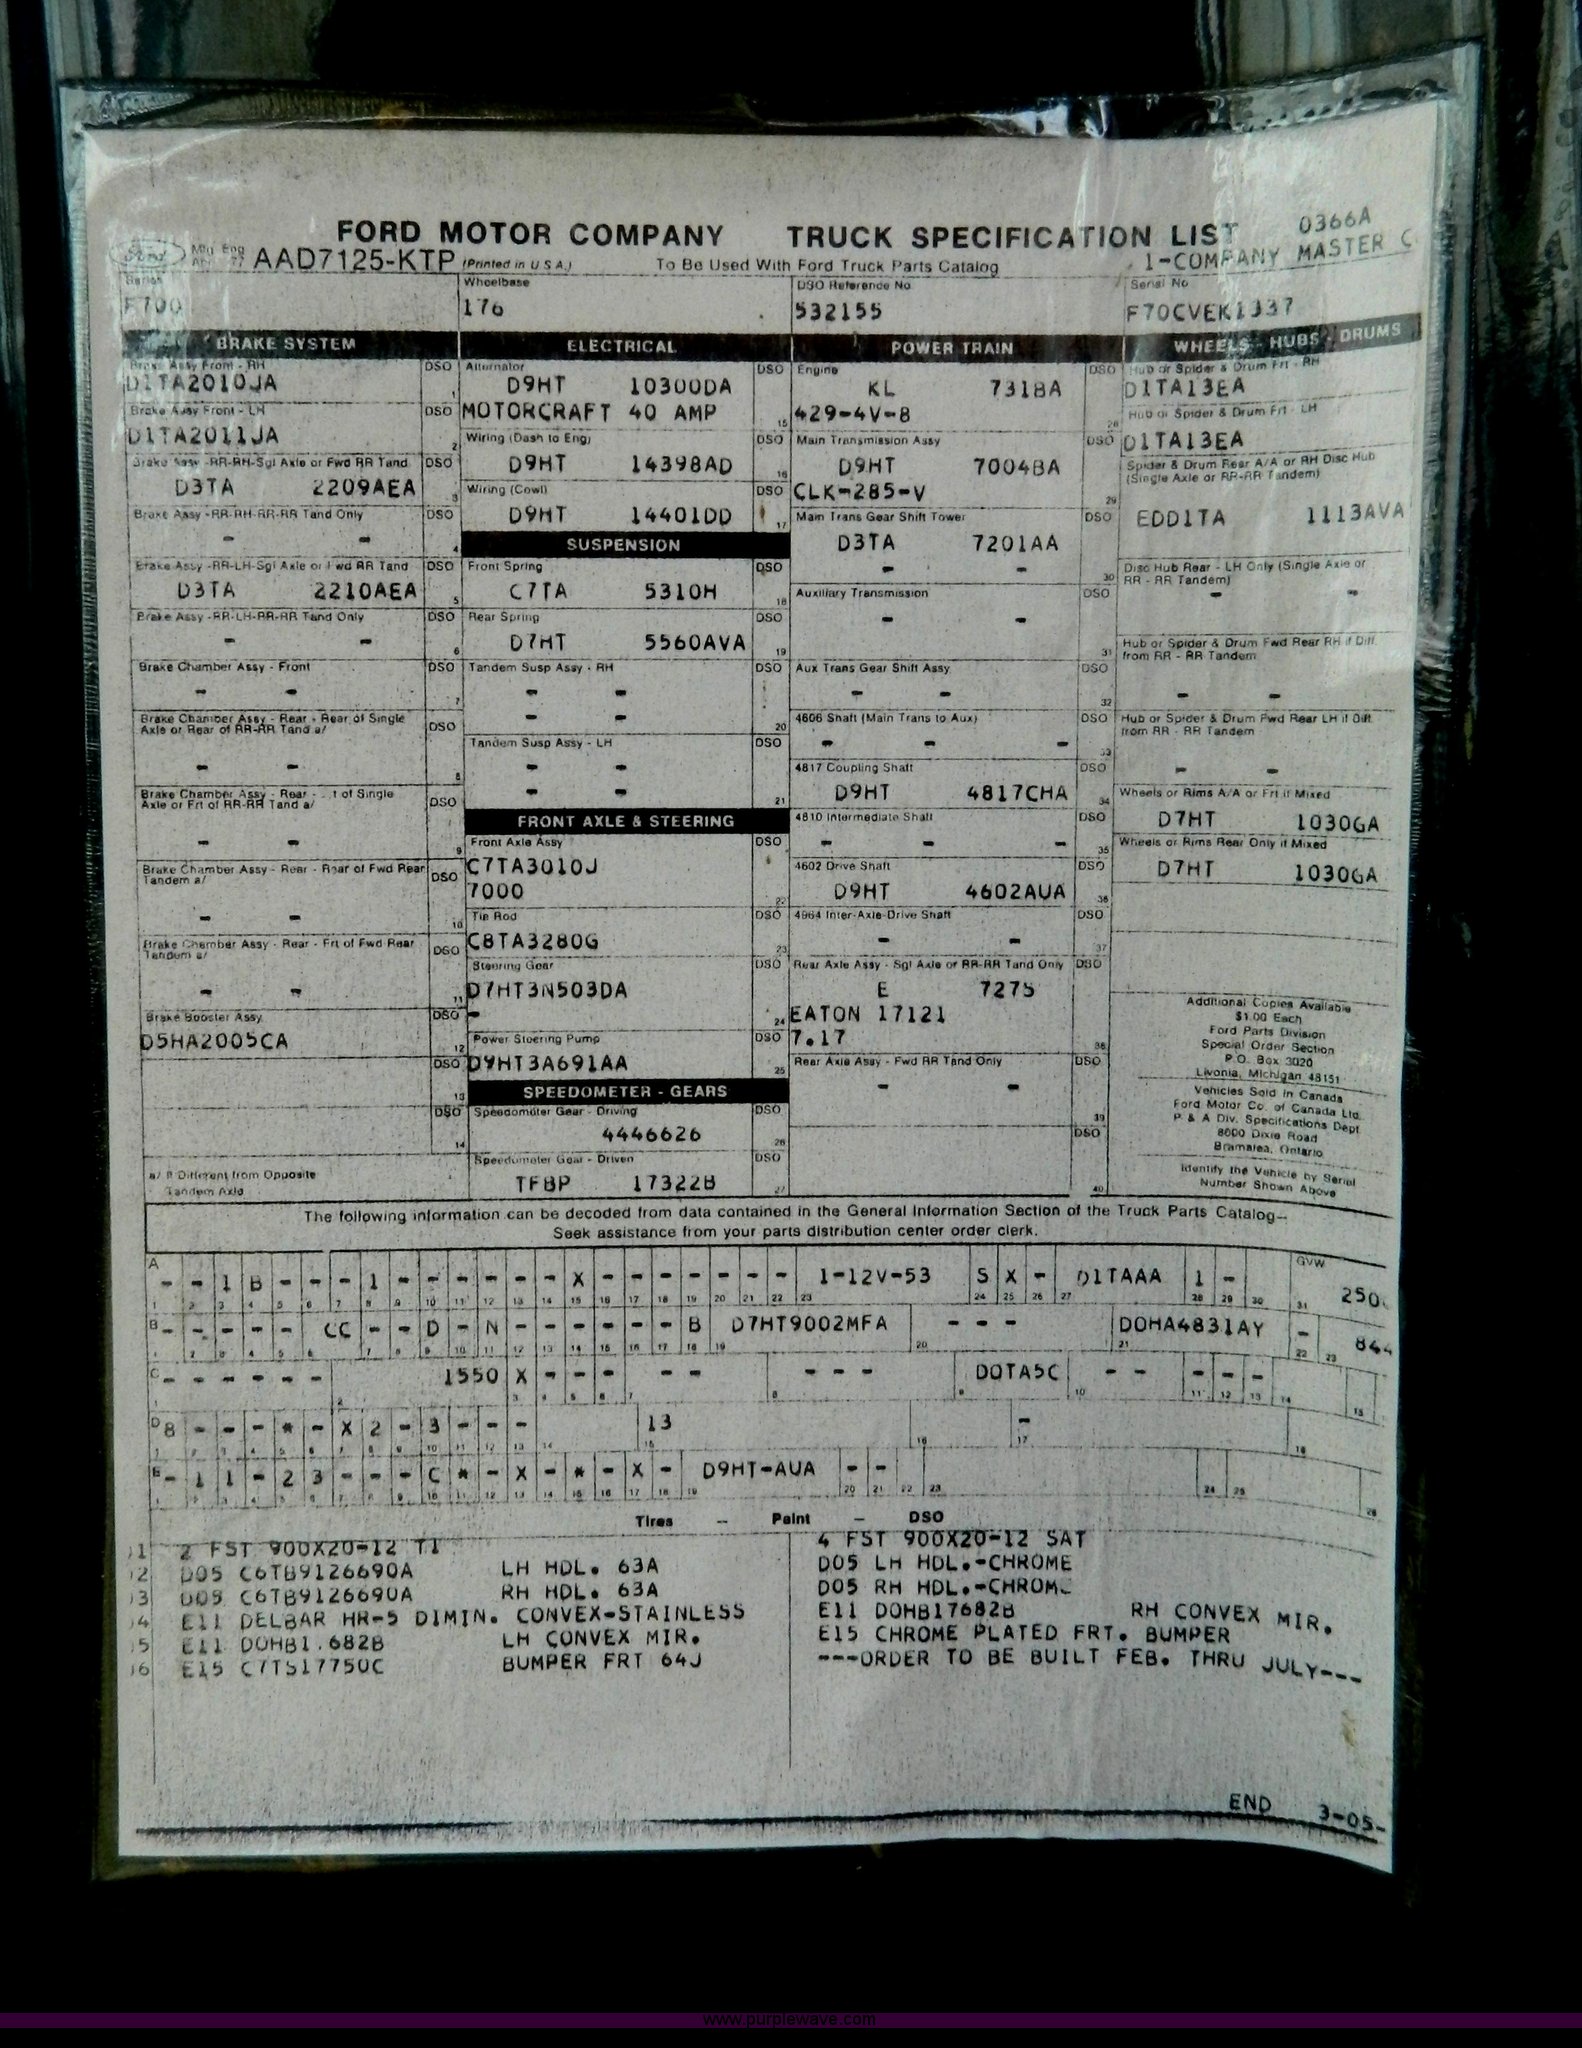 0366A
FORD MOTOR COMPANY TRUCK SPECIFICATION LIST
1-COMPANY MASTER C
Ford AAD7125-KTP (Printed in U.S.A.) To Be Used With Ford Truck Parts Catalog
Series Wheelbase DSO Reference No Serial No
F700 176 532155 F70CVEK1337
BRAKE SYSTEM
Brake Assy Front - RH DSO
D1TA2010JA
1
Brake Assy Front - LH DSO
D1TA2011JA
2
Brake Assy -RR-RH-Sgl Axle or Fwd RR Tand DSO
D3TA 2209AEA
3
Brake Assy -RR-RH-RR-RR Tand Only DSO
- -
4
Brake Assy -RR-LH-Sgl Axle or Fwd RR Tand DSO
D3TA 2210AEA
5
Brake Assy -RR-LH-RR-RR Tand Only DSO
- -
6
Brake Chamber Assy - Front DSO
- -
7
Brake Chamber Assy - Rear - Rear of Single
Axle or Rear of RR-RR Tand a/ DSO
- -
8
Brake Chamber Assy - Rear - t of Single
Axle or Frt of RR-RR Tand a/ DSO
- -
9
Brake Chamber Assy - Rear - Rear of Fwd Rear
Tandem a/ DSO
- -
10
Brake Chamber Assy - Rear - Frt of Fwd Rear
Tandem a/ DSO
- -
11
Brake Booster Assy DSO
D5HA2005CA
12
DSO
13
DSO
14
a/ If Different from Opposite
Tandem Axle
ELECTRICAL
Alternator DSO
D9HT 10300DA
MOTORCRAFT 40 AMP
15
Wiring (Dash to Eng) DSO
D9HT 14398AD
16
Wiring (Cowl) DSO
D9HT 14401DD
17
SUSPENSION
Front Spring DSO
C7TA 5310H
18
Rear Spring DSO
D7HT 5560AVA
19
Tandem Susp Assy - RH DSO
- -
- -
20
Tandem Susp Assy - LH DSO
- -
- -
21
FRONT AXLE & STEERING
Front Axle Assy DSO
C7TA3010J
7000
22
Tie Rod DSO
C8TA3280G
23
Steering Gear DSO
D7HT3N503DA
-
24
Power Steering Pump DSO
D9HT3A691AA
25
SPEEDOMETER - GEARS
Speedometer Gear - Driving DSO
4446626
26
Speedometer Gear - Driven DSO
TFBP 17322B
27
POWER TRAIN
Engine DSO
KL 7318A
429-4V-8
28
Main Transmission Assy DSO
D9HT 7004BA
CLK-285-V
29
Main Trans Gear Shift Tower DSO
D3TA 7201AA
- -
30
Auxiliary Transmission DSO
- -
31
Aux Trans Gear Shift Assy DSO
- -
32
4606 Shaft (Main Trans to Aux) DSO
- - -
33
4817 Coupling Shaft DSO
D9HT 4817CHA
34
4810 Intermediate Shaft DSO
- - -
35
4602 Drive Shaft DSO
D9HT 4602AUA
36
4964 Inter-Axle-Drive Shaft DSO
- -
37
Rear Axle Assy - Sgl Axle or RR-RR Tand Only DSO
E 7275
EATON 17121
7.17
38
Rear Axle Assy - Fwd RR Tand Only DSO
- -
39
DSO
40
WHEELS - HUBS - DRUMS
Hub or Spider & Drum Frt - RH
D1TA13EA
Hub or Spider & Drum Frt - LH
D1TA13EA
Spider & Drum Rear A/A or RH Disc Hub
(Single Axle or RR-RR Tandem)
EDD1TA 1113AVA
Disc Hub Rear - LH Only (Single Axle or
RR - RR Tandem)
- -
Hub or Spider & Drum Fwd Rear RH if Diff.
from RR - RR Tandem
- -
Hub or Spider & Drum Fwd Rear LH if Diff.
from RR - RR Tandem
- -
Wheels or Rims A/A or Frt if Mixed
D7HT 1030GA
Wheels or Rims Rear Only if Mixed
D7HT 1030GA
Additional Copies Available
$1.00 Each
Ford Parts Division
Special Order Section
P.O. Box 3020
Livonia, Michigan 48151
Vehicles Sold in Canada
Ford Motor Co. of Canada Ltd.
P & A Div. Specifications Dept.
8000 Dixie Road
Bramalea, Ontario
Identify the Vehicle by Serial
Number Shown Above
The following information can be decoded from data contained in the General Information Section of the Truck Parts Catalog--
Seek assistance from your parts distribution center order clerk.
A - - 1 B - - - 1 - - - - - - X - - - - - - - 1-12V-53 S X - D1TAAA 1 - GVW 250
B - - - - - CC - - D - N - - - - - - B D7HT9002MFA - - - D0HA4831AY - 844
C - - - - - - 1550 X - - - - - - - - D0TA5C - - - - -
D 8 - - - * - X 2 - 3 - - - 13 -
E - 1 1 - 2 3 - - - C * - X - * - X - D9HT-AUA - -
Tires -- Paint - DSO
1 2 FST 900X20-12 T1 4 FST 900X20-12 SAT
2 D05 C6TB9126690A LH HDL. 63A D05 LH HDL.-CHROME
3 D05 C6TB9126690A RH HDL. 63A D05 RH HDL.-CHROME
4 E11 DELBAR HR-5 DIMIN. CONVEX-STAINLESS E11 D0HB17682B RH CONVEX MIR.
5 E11 D0HB1.682B LH CONVEX MIR. E15 CHROME PLATED FRT. BUMPER
6 E15 C7TS17750C BUMPER FRT 64J ---ORDER TO BE BUILT FEB. THRU JULY---
END 3-05-
www.purplewave.com